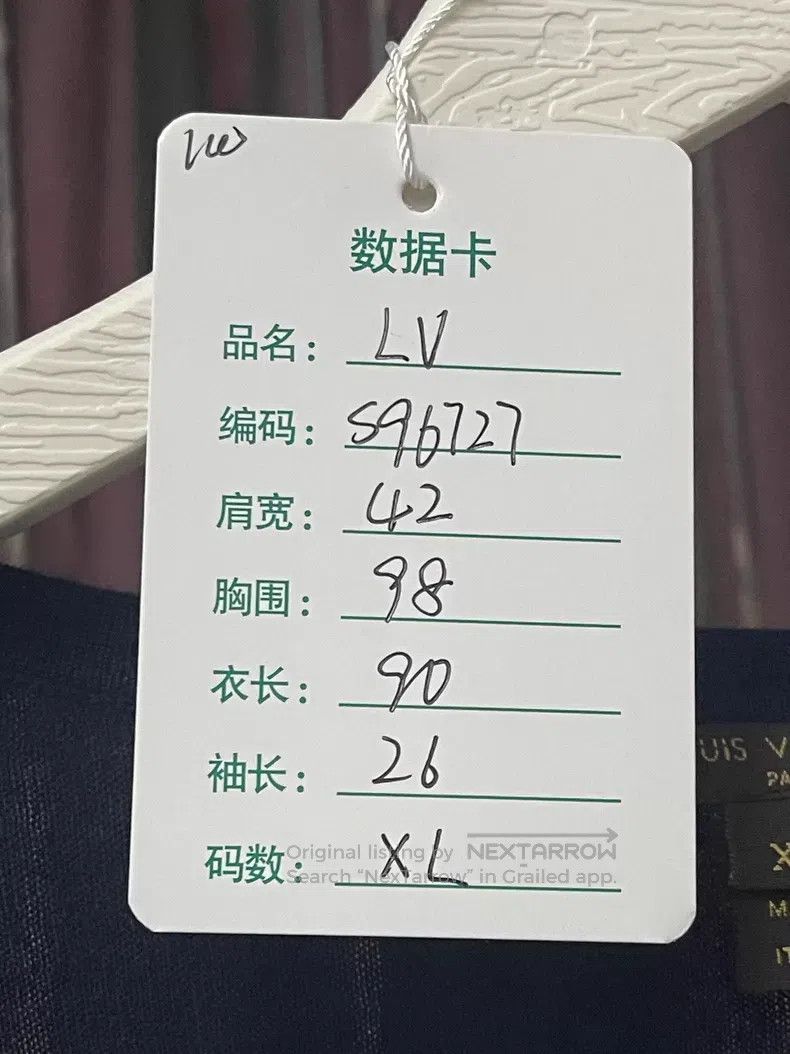 数据卡
品名： LV
编码： S96727
肩宽： 42
胸围： 98
衣长： 90
袖长： 26
码数： XL
Original listing by NEXTARROW
Search “NexTarrow” in Grailed app.
UIS V
PA
X
M
IT